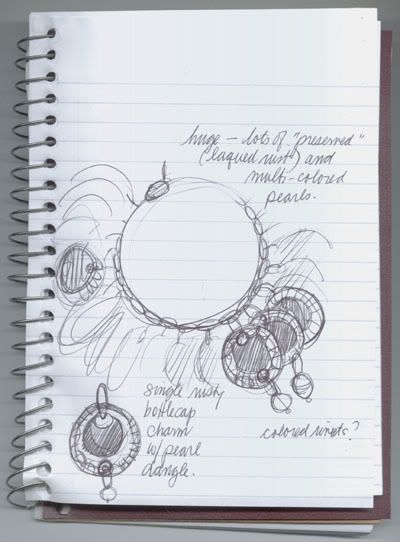 huge — lots of "preserved"
(laqued rust) and
multi-colored
pearls.
single rusty
bottlecap
charm
w/ pearl
dangle.
colored rivets?